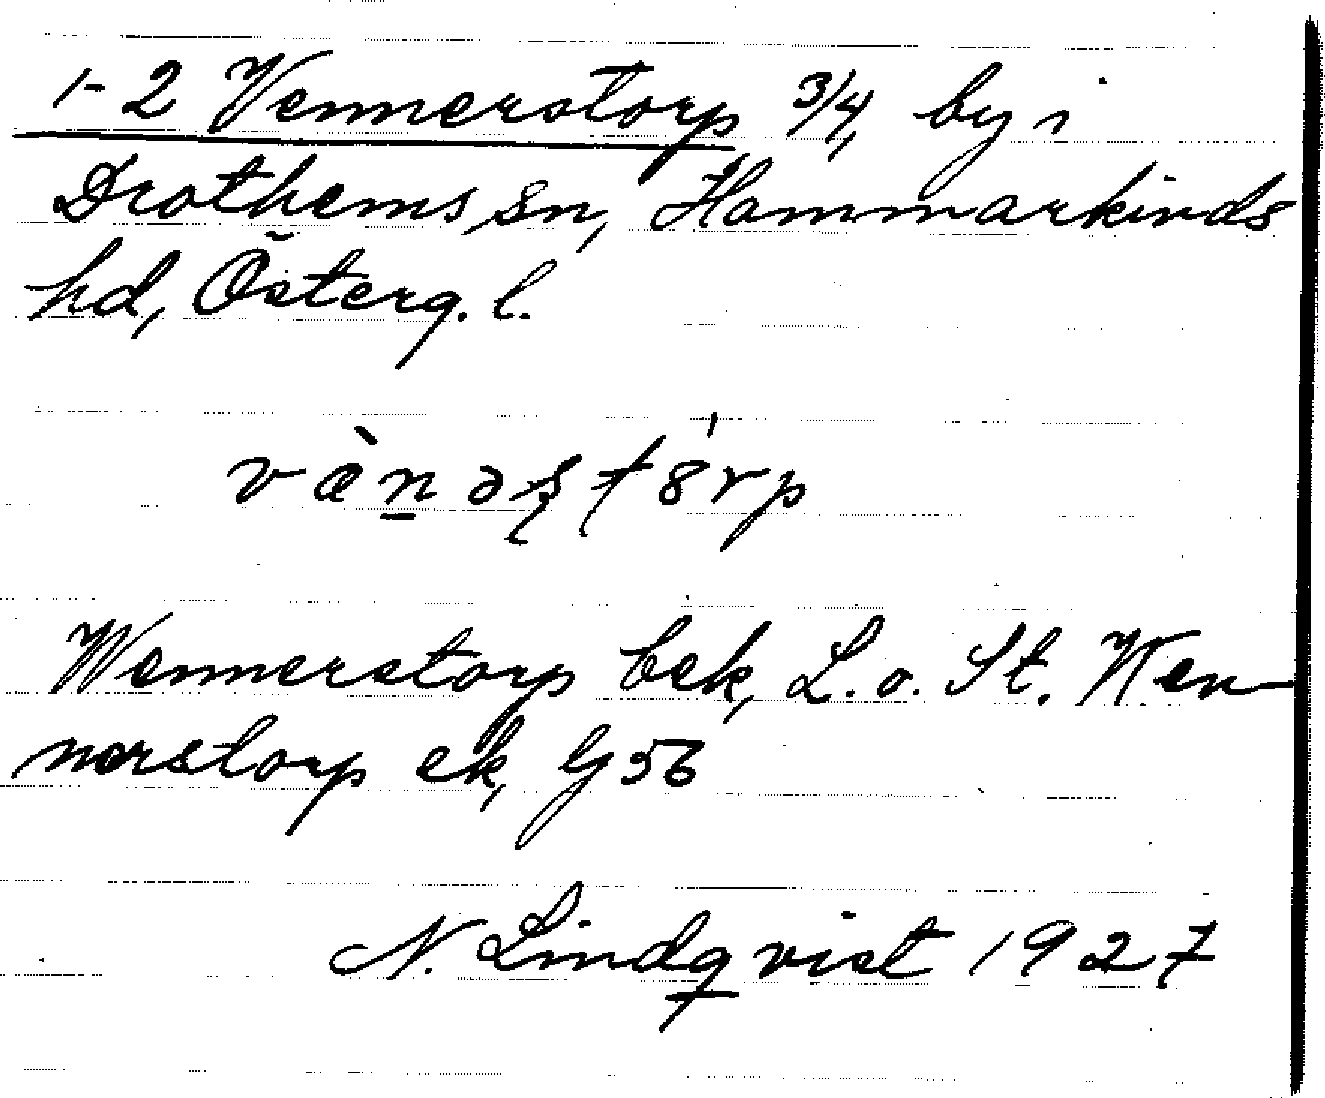 1-2 Vennerstorp 3/4, by i
Drothems sn, Hammarkinds
hd, Österg. l.
vànəʂtórp
Wennerstorp bek, L. o. St. Wen-
nerstorp ek, G 56
N. Lindqvist 1927